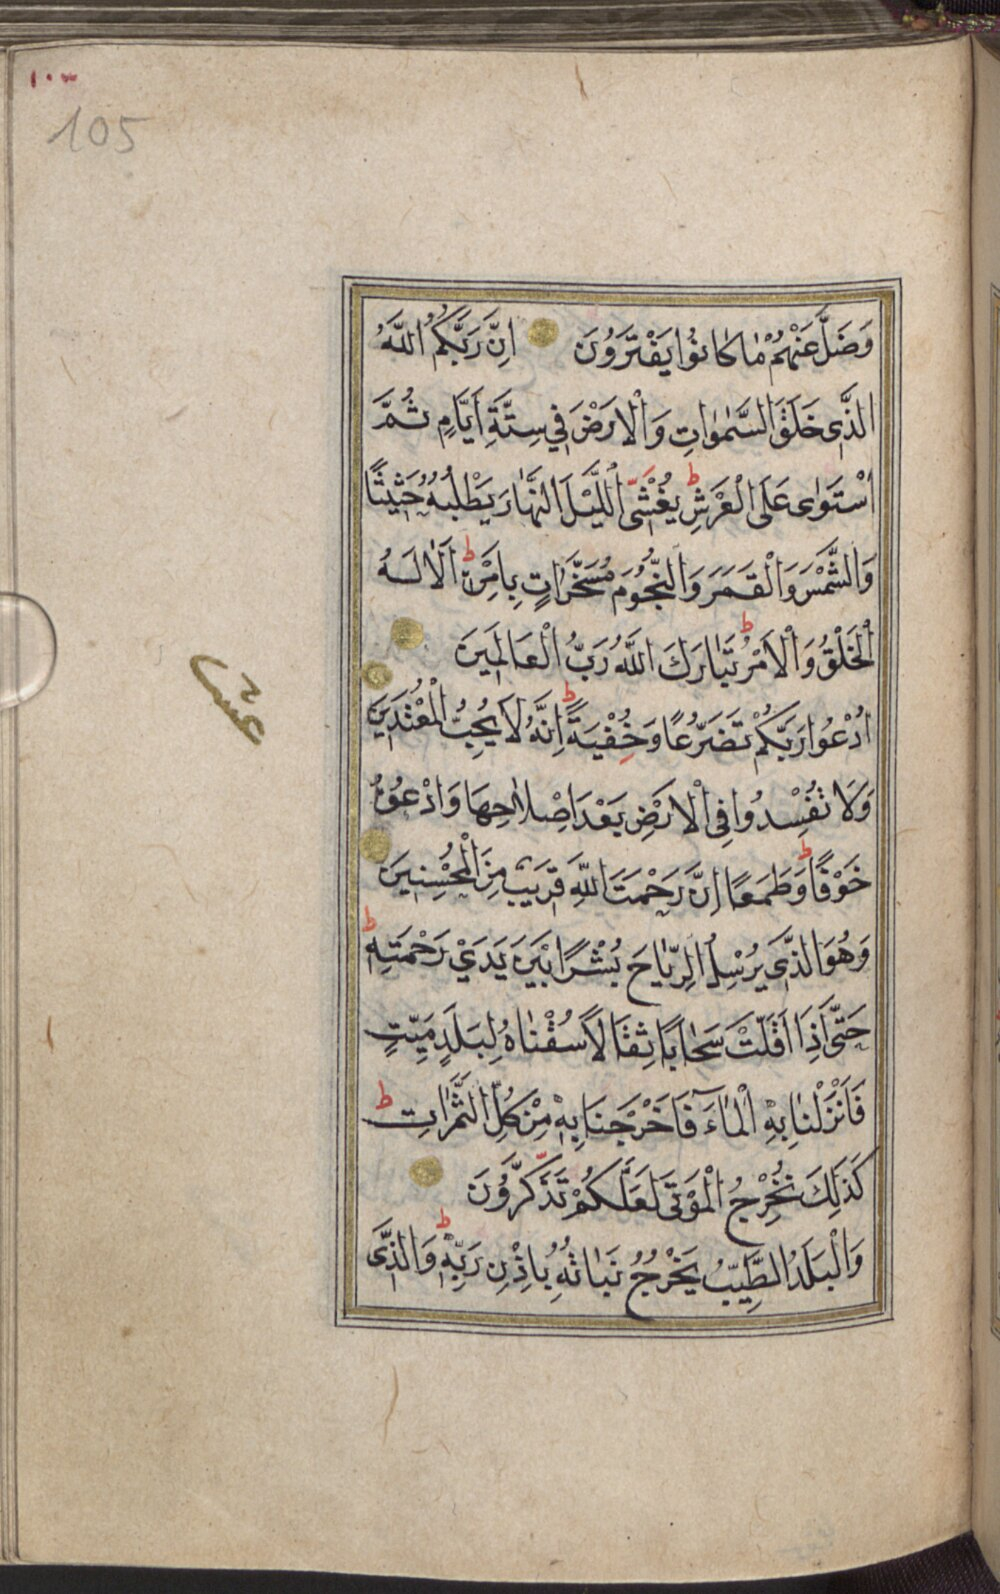 ١٠٣
105
وَضَلَّ عَنْهُمْ مَا كَانُوا يَفْتَرُونَ اِنَّ رَبَّكُمُ اللّٰهُ
الَّذِى خَلَقَ السَّمٰوَاتِ وَالْاَرْضَ فِي سِتَّةِ اَيَّامٍ ثُمَّ
اسْتَوٰى عَلَى الْعَرْشِ ط يُغْشِى الَّيْلَ النَّهَارَ يَطْلُبُهُ حَثِيثًا
وَالشَّمْسَ وَالْقَمَرَ وَالنُّجُومَ مُسَخَّرَاتٍ بِاَمْرِهِ ط اَلَا لَهُ
الْخَلْقُ وَالْاَمْرُ ط تَبَارَكَ اللّٰهُ رَبُّ الْعَالَمِينَ
عشر
اُدْعُوا رَبَّكُمْ تَضَرُّعًا وَخُفْيَةً ط اِنَّهُ لَا يُحِبُّ الْمُعْتَدِينَ
وَلَا تُفْسِدُوا فِى الْاَرْضِ بَعْدَ اِصْلَاحِهَا وَادْعُوهُ
خَوْفًا وَطَمَعًا ط اِنَّ رَحْمَتَ اللّٰهِ قَرِيبٌ مِنَ الْمُحْسِنِينَ
وَهُوَ الَّذِى يُرْسِلُ الرِّيَاحَ بُشْرًا بَيْنَ يَدَيْ رَحْمَتِهِ ط
حَتّٰى اِذَا اَقَلَّتْ سَحَابًا ثِقَالًا سُقْنَاهُ لِبَلَدٍ مَيِّتٍ
فَاَنْزَلْنَا بِهِ الْمَآءَ فَاَخْرَجْنَا بِهِ مِنْ كُلِّ الثَّمَرَاتِ ط
كَذٰلِكَ نُخْرِجُ الْمَوْتٰى لَعَلَّكُمْ تَذَكَّرُونَ
وَالْبَلَدُ الطَّيِّبُ يَخْرُجُ نَبَاتُهُ بِاِذْنِ رَبِّهِ ط وَالَّذِى